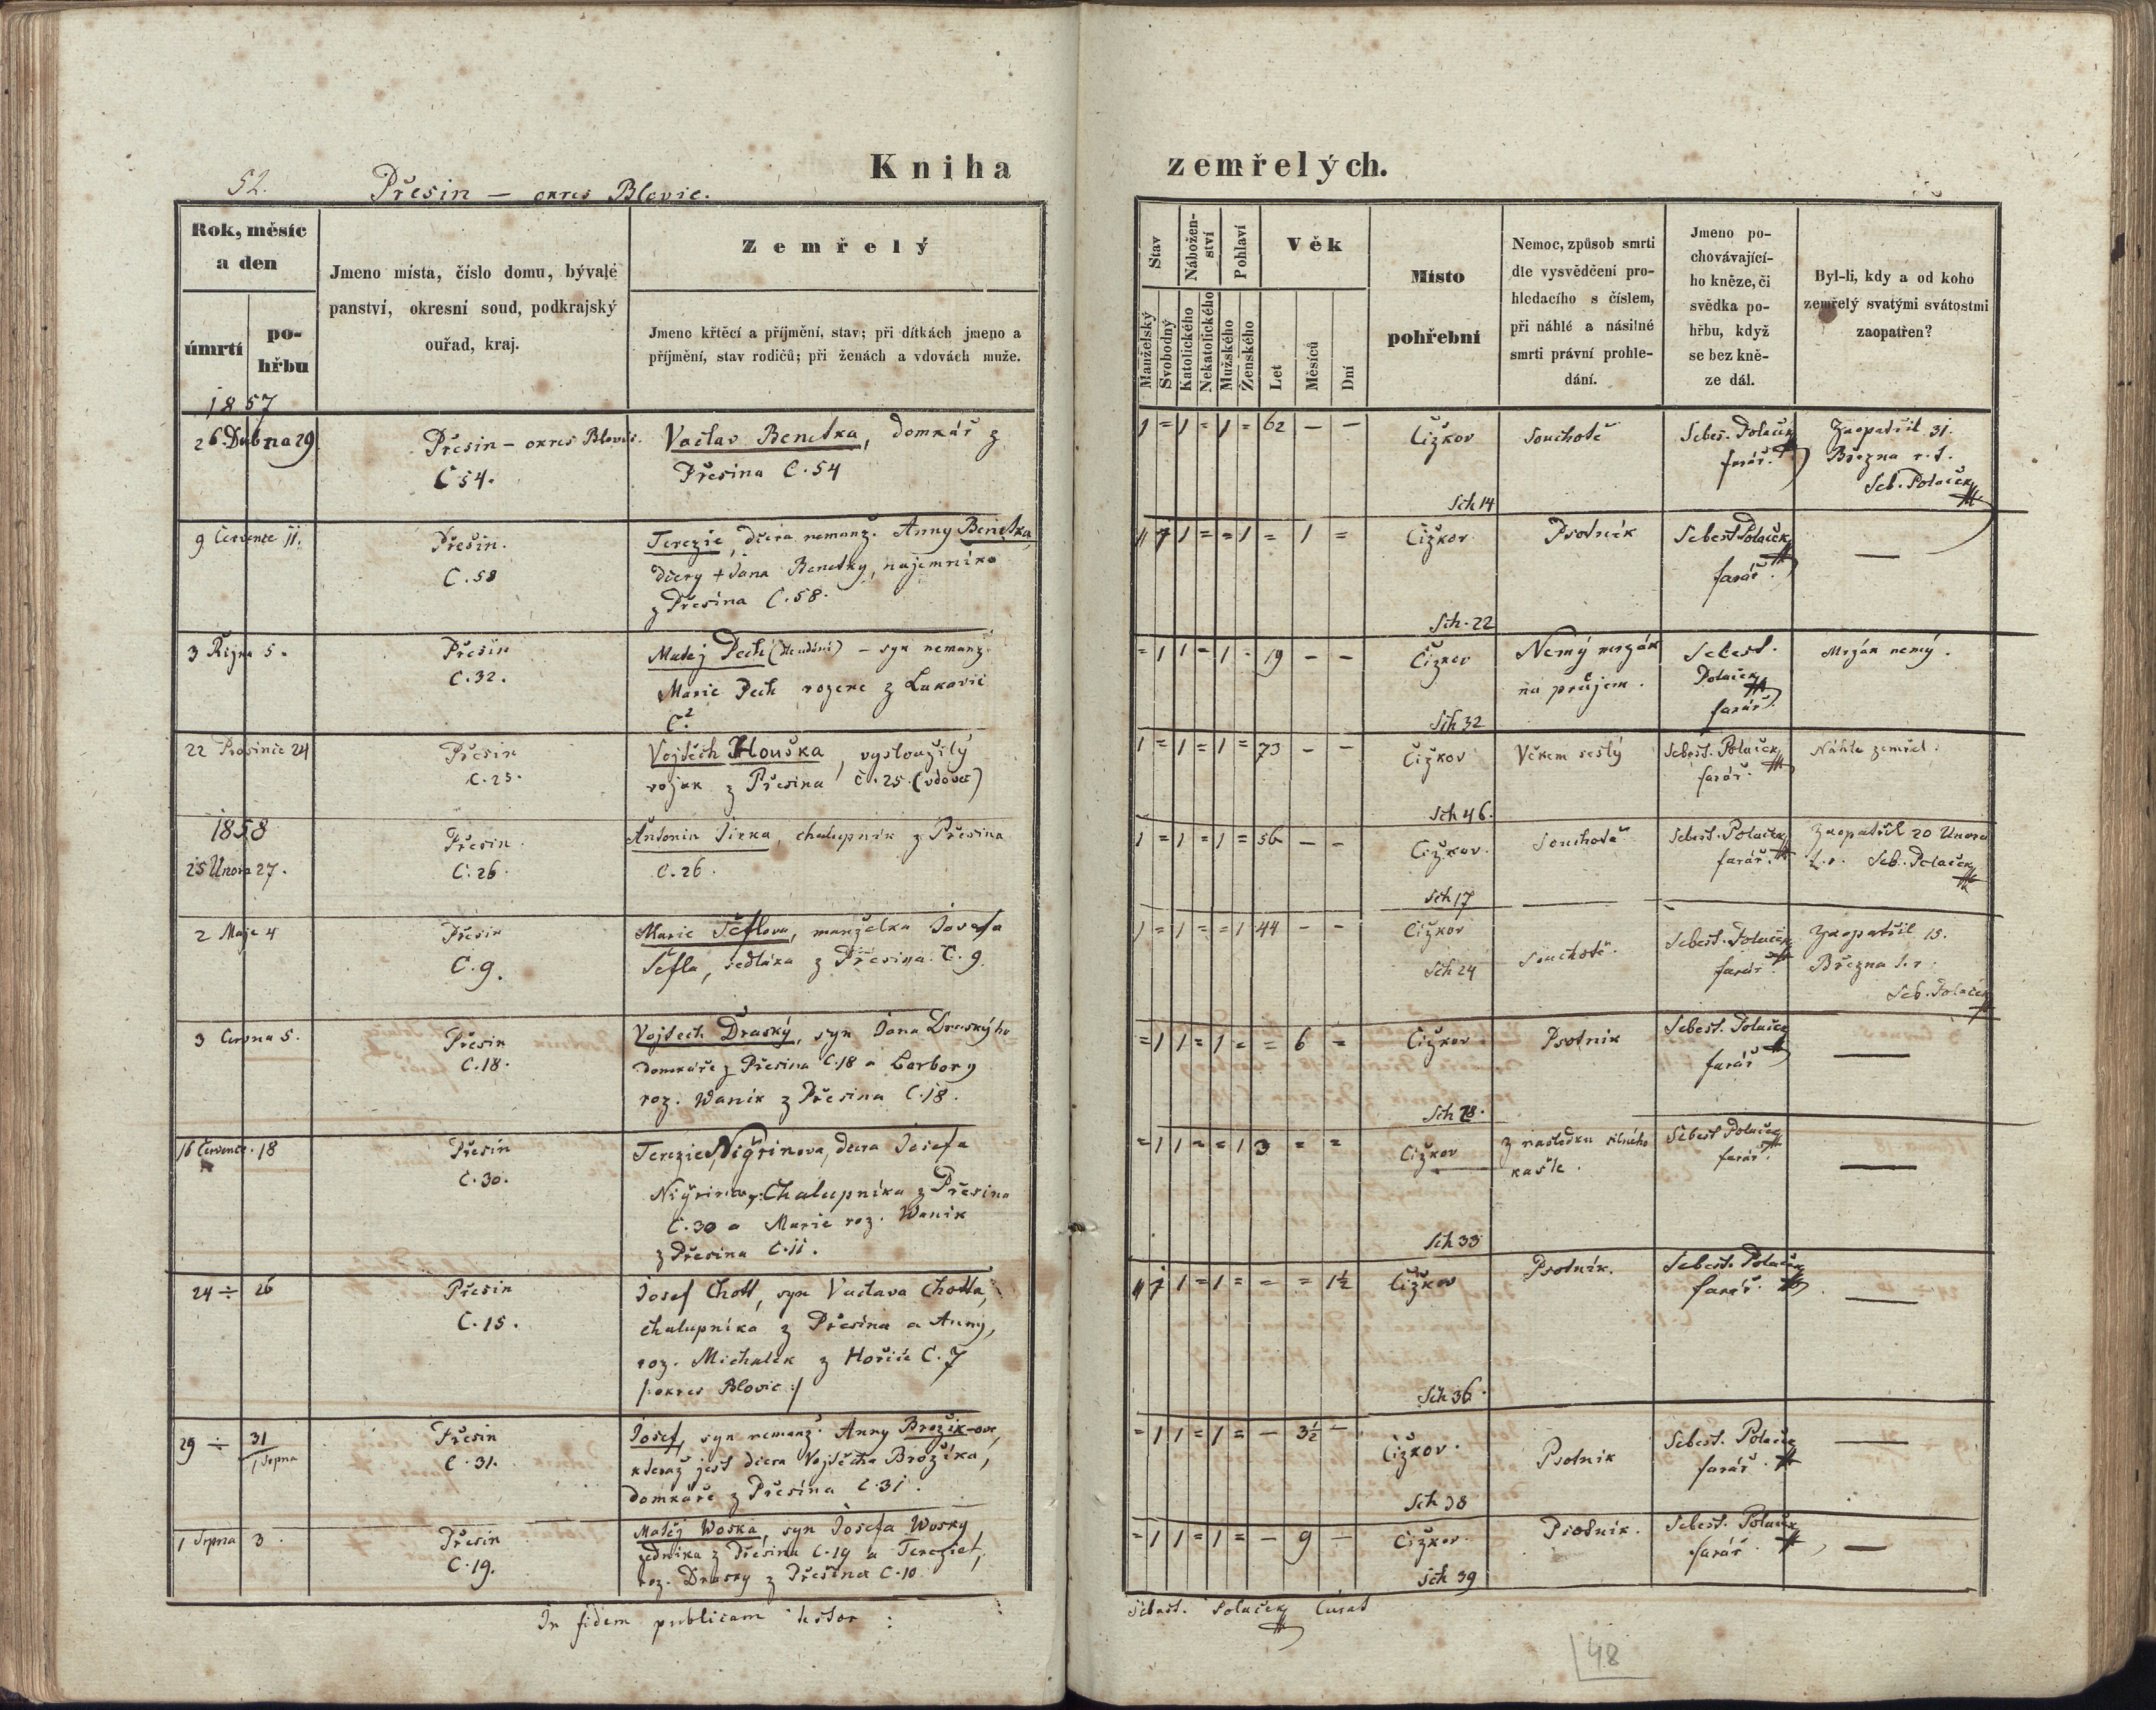 Kniha zemřelých.
52. Přesin — okres Blovic.
Rok, měsíc a den
úmrtí
pohřbu
Jmeno místa, číslo domu, bývalé
panství, okresní soud, podkrajský
ouřad, kraj.
Zemřelý
Jmeno křtěcí a příjmění, stav; při dítkách jmeno a
příjmění, stav rodičů; při ženách a vdovách muže.
Stav
Manželský
Svobodný
Nábožen-
ství
Katolického
Nekatolického
Pohlaví
Mužského
Ženského
Věk
Let
Měsíců
Dní
Místo
pohřební
Nemoc, způsob smrti
dle vysvědčení pro-
hledacího s číslem,
při náhlé a násilné
smrti právní prohle-
dání.
Jmeno po-
chovávající-
ho kněze, či
svědka po-
hřbu, když
se bez kně-
ze dál.
Byl-li, kdy a od koho
zemřelý svatými svátostmi
zaopatřen?
1857
26. Dubna 29.
Přesin - okres Blovic.
C 54.
Vaclav Benetka, domkář z
Přesina C. 54
1 = 1 = 1 = 62 — —
Čižkov
Sch 14
Souchotě
Sebes. Polaček
farář.
Zaopatřil 31.
Března r. t.
Seb. Polaček
9 Července 11.
Přesin.
C. 58
Terezie, dcera nemanž. Anny Benetka,
dcery + Jana Benetky, najemníka
z Přesina C. 58.
1 1 = = 1 = 1 =
Čižkov
Sch. 22
Psotník
Sebest Polaček
farář.
—
3 Řijna 5.
Přesin
C. 32.
Matěj Pech — syn nemanž.
Marie Pech rozene z Lukavic
C. 2
= 1 1 = 1 = 19 — —
Čižkov
Sch 32
Nemý mrzák
na průjem.
Sebest.
Polaček
farář.
Mrzák nemý.
22 Prosince 24
Přesin
C. 25.
Vojtěch Houška, vysloužilý
vojak z Přesina č. 25. (vdovec)
1 = 1 = 1 = 73 — —
Čižkov
Sch 46.
Věkem sešlý
Sebest. Polaček
farář.
Náhle zemřel.
1858
25 Unora 27.
Přesin.
C. 26.
Antonin Jirka, chalupník z Přesina
C. 26.
1 = 1 = 1 = 56 — —
Čižkov.
Sch 17
Souchotě
Sebest. Polaček
farář.
Zaopatřil 20 Unora
t. r. Seb. Polaček
2 Maje 4
Přesin
C. 9.
Marie Šeflova, manželka Josefa
Šefla, sedláka z Přesina. C. 9
1 = 1 = = 1 44 — —
Čižkov
Sch 24
Souchotě.
Sebest. Polaček
farář.
Zaopatřil 15.
Března t. r.
Seb. Polaček
3 Června 5.
Přesin
C. 18.
Vojtech Draský, syn Jana Draskýho
domkáře z Přesina C. 18 a Barbory
roz. Wanik z Přesina C. 18.
= 1 1 = 1 = = 6 =
Čižkov
Sch 28.
Psotník
Sebest. Polaček
farář
—
16 Července. 18
Přesin
C. 30.
Terezie Nigrinova, dcera Josefa
Nigrina, Chalupníka z Přesina
C. 30 a Marie roz. Wanik
z Přesina C. 11.
= 1 1 = = 1 3 = =
Čižkov
Sch 33
Z nasledku silného
kašle.
Sebest Polaček
farář.
—
24 ÷ 26
Přesin
C. 15.
Josef Chott, syn Vaclava Chotta,
chalupníka z Přesina a Anny,
roz. Michalek z Hořic C. 7
/: okres Blovic :/
1 = 1 = — = 1½
Čižkov
Sch 36.
Psotník.
Sebest. Polaček
farář.
—
29 ÷ 31
1 Srpna
Přesin
C. 31.
Josef, syn nemanž. Anny Brožik-ove,
kteraž jest dcera Vojtěcha Brožíka,
domkáře z Přesína C. 31.
= 1 1 = 1 = — 3½ —
Čižkov.
Sch 38
Psotník
Sebest. Polaček
farář.
—
1 Srpna 3.
Přesin
C. 19.
Matěj Woska, syn Josefa Wosky
zedníka z Přesina C. 19 a Terezie,
roz. Drasky z Přesina C. 10
= 1 1 = 1 = — 9 —
Čižkov.
Sch 39
Psotník.
Sebest. Polaček
farář
—
In fidem publicam testor :
Sebast. Polaček Curat
48